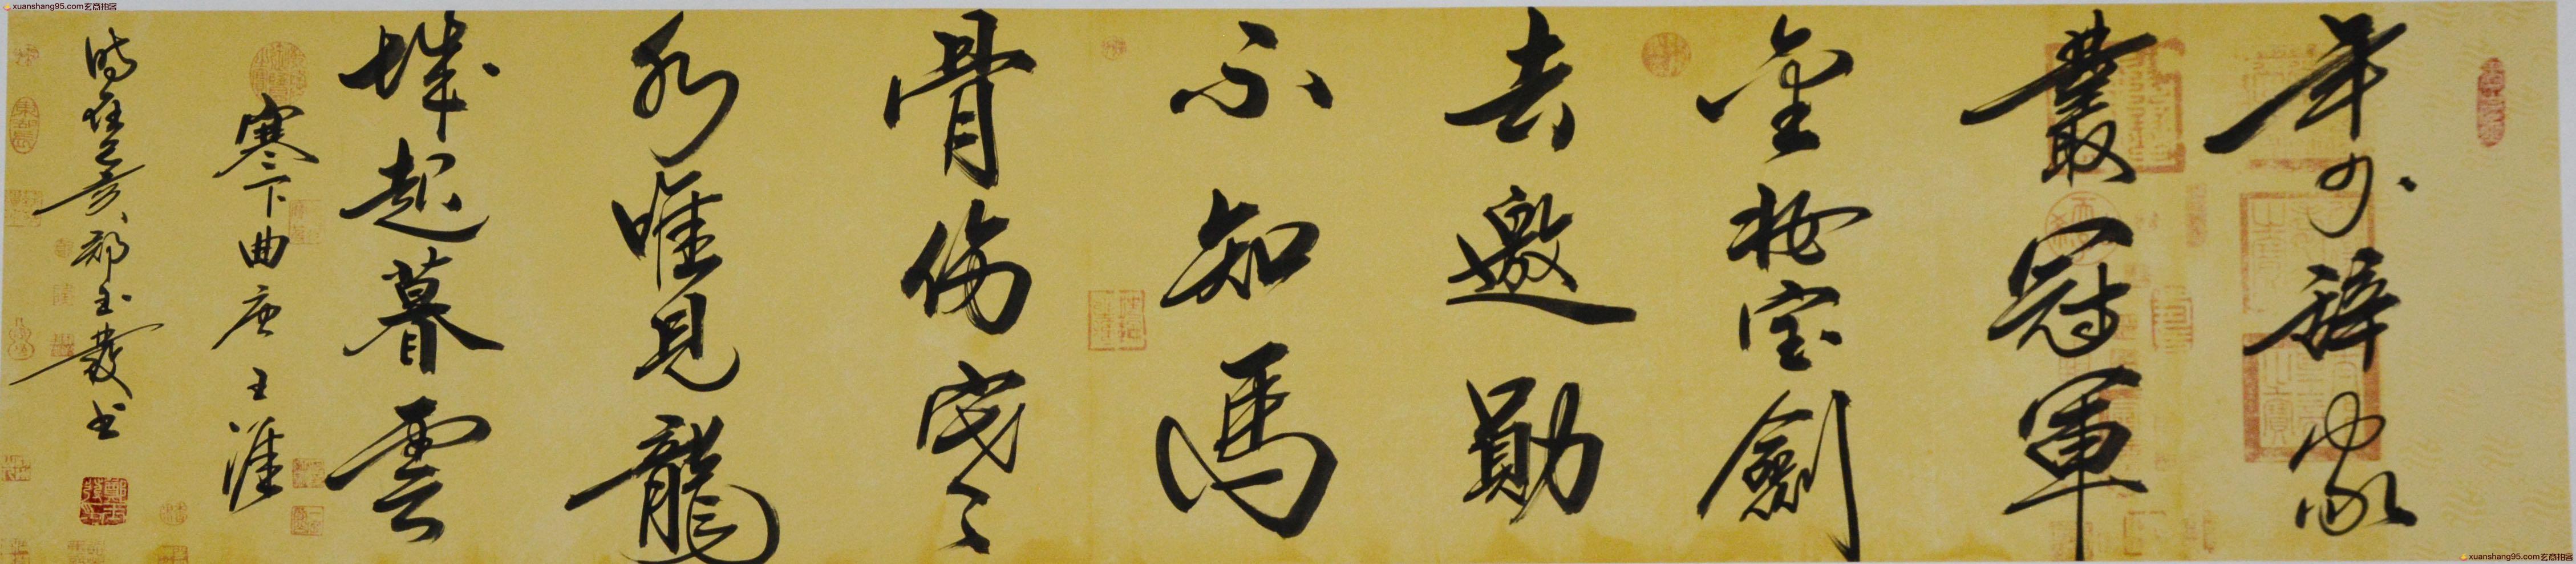 xuanshang95.com玄商拍客
年少辭家
叢冠軍
金妝宝劍
去邀勛
不知馬
骨傷寒
水唯見龍
城起暮雲
塞下曲唐王涯
时在乙亥郑玉發书
xuanshang95.com玄商拍客